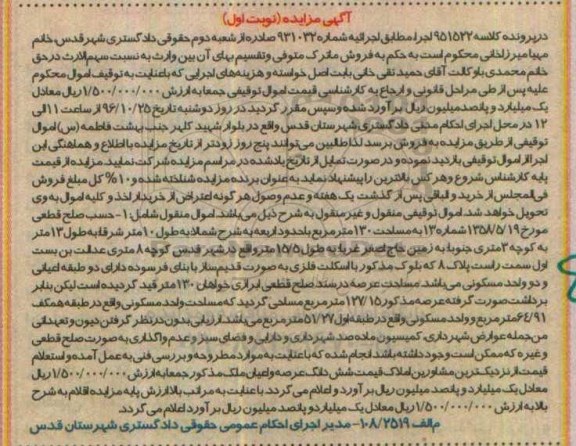 آگهی مزایده (نوبت اول)
در پرونده کلاسه ۹۵۱۵۲۲ اجرا مطابق اجرائیه شماره ۹۳۱۰۳۲ صادره از شعبه دوم حقوقی دادگستری شهر قدس، خانم
مهیا میرزاخانی محکوم است به حکم به فروش ماترک متوفی و تقسیم بهای آن بین وراث به نسبت سهم الارث در حق
خانم محمدی با وکالت آقای حمید تقی خانی بابت اصل خواسته و هزینه های اجرایی که با عنایت به توقیف اموال محکوم
علیه پس از طی مراحل قانونی و ارجاع به کارشناسی قیمت اموال توقیفی جمعا به ارزش ۱/۵۰۰/۰۰۰/۰۰۰ ریال معادل
یک میلیارد و پانصد میلیون ریال برآورد شده و سپس مقرر گردید در روز دوشنبه تاریخ ۹۶/۱۰/۲۵ از ساعت ۱۱ الی
۱۲ در محل اجرای احکام مدنی دادگستری شهرستان قدس واقع در بلوار شهید کلهر جنب بهشت فاطمه (س) اموال
توقیفی از طریق مزایده به فروش برسد لذا طالبین می توانند پنج روز زودتر از تاریخ مزایده با اطلاع و هماهنگی این
اجرا از اموال توقیفی بازدید نموده و در صورت تمایل از تاریخ یاد شده در مراسم مزایده شرکت نمایند. مزایده از قیمت
پایه کارشناس شروع و هر کس بالاترین را پیشنهاد نماید به عنوان برنده مزایده شناخته شده و ۱۰% کل مبلغ فروش
فی المجلس از خرید و الباقی پس از گذشت یک هفته و عدم وصول هر گونه اعتراض از خریدار اخذ و کلیه اموال به وی
تحویل خواهد شد. اموال توقیفی منقول و غیر منقول به شرح ذیل می باشد. اموال منقول شامل: ۱- حسب صلح قطعی
مورخ ۱۳۵۸/۵/۱۹ شماره ۱۳ به مساحت ۱۳۰ متر مربع با حدود اربعه به شرح شمالا به طول ۱۰ متر شرقا به طول ۱۳ متر
به کوچه ۳ متری جنوبا به زمین حاج اصغر غربا به طول ۱۵/۵ متر واقع در شهر قدس کوچه ۸ متری عدالت بن بست
اول سمت راست پلاک ۸ که بلوک مذکور با اسکلت فلزی به صورت قدیم ساز با بنای فرسوده دارای دو طبقه اعیانی
و دو واحد مسکونی می باشد. مساحت عرصه در سند صلح قطعی ابرازی خواهان ۱۳۰ متر قید گردیده است لیکن بنابر
برداشت صورت گرفته عرصه مذکور ۱۲۷/۱۵ متر مربع مساحی گردید که مساحت واحد مسکونی واقع در طبقه همکف
۶۴/۹۱ متر مربع و واحد مسکونی واقع در طبقه اول ۵۱/۲۷ متر مربع می باشد ارزیابی بدون در نظر گرفتن دیون و تعهداتی
من جمله عوارض شهرداری، کمیسیون ماده صد شهرداری و دارایی و فضای سبز و عدم واگذاری به صورت صلح قطعی
و غیره که ممکن است وجود داشته باشد انجام شده که با عنایت به موارد مطروحه و بررسی فنی به عمل آمده و استعلام
قیمت از نزدیک ترین مشاورین املاک قیمت شش دانگ عرصه و اعیان ملک مذکور جمعا به ارزش ۱/۵۰۰/۰۰۰/۰۰۰ ریال
معادل یک میلیارد و پانصد میلیون ریال برآورد و اعلام می گردد. با عنایت به مراتب بالا ارزش پایه مزایده اقلام به شرح
بالا به ارزش ۱/۵۰۰/۰۰۰/۰۰۰ ریال معادل یک میلیارد و پانصد میلیون ریال برآورد اعلام می گردد.
م الف ۱۰۸/۲۵۱۹- مدیر اجرای احکام عمومی حقوقی دادگستری شهرستان قدس